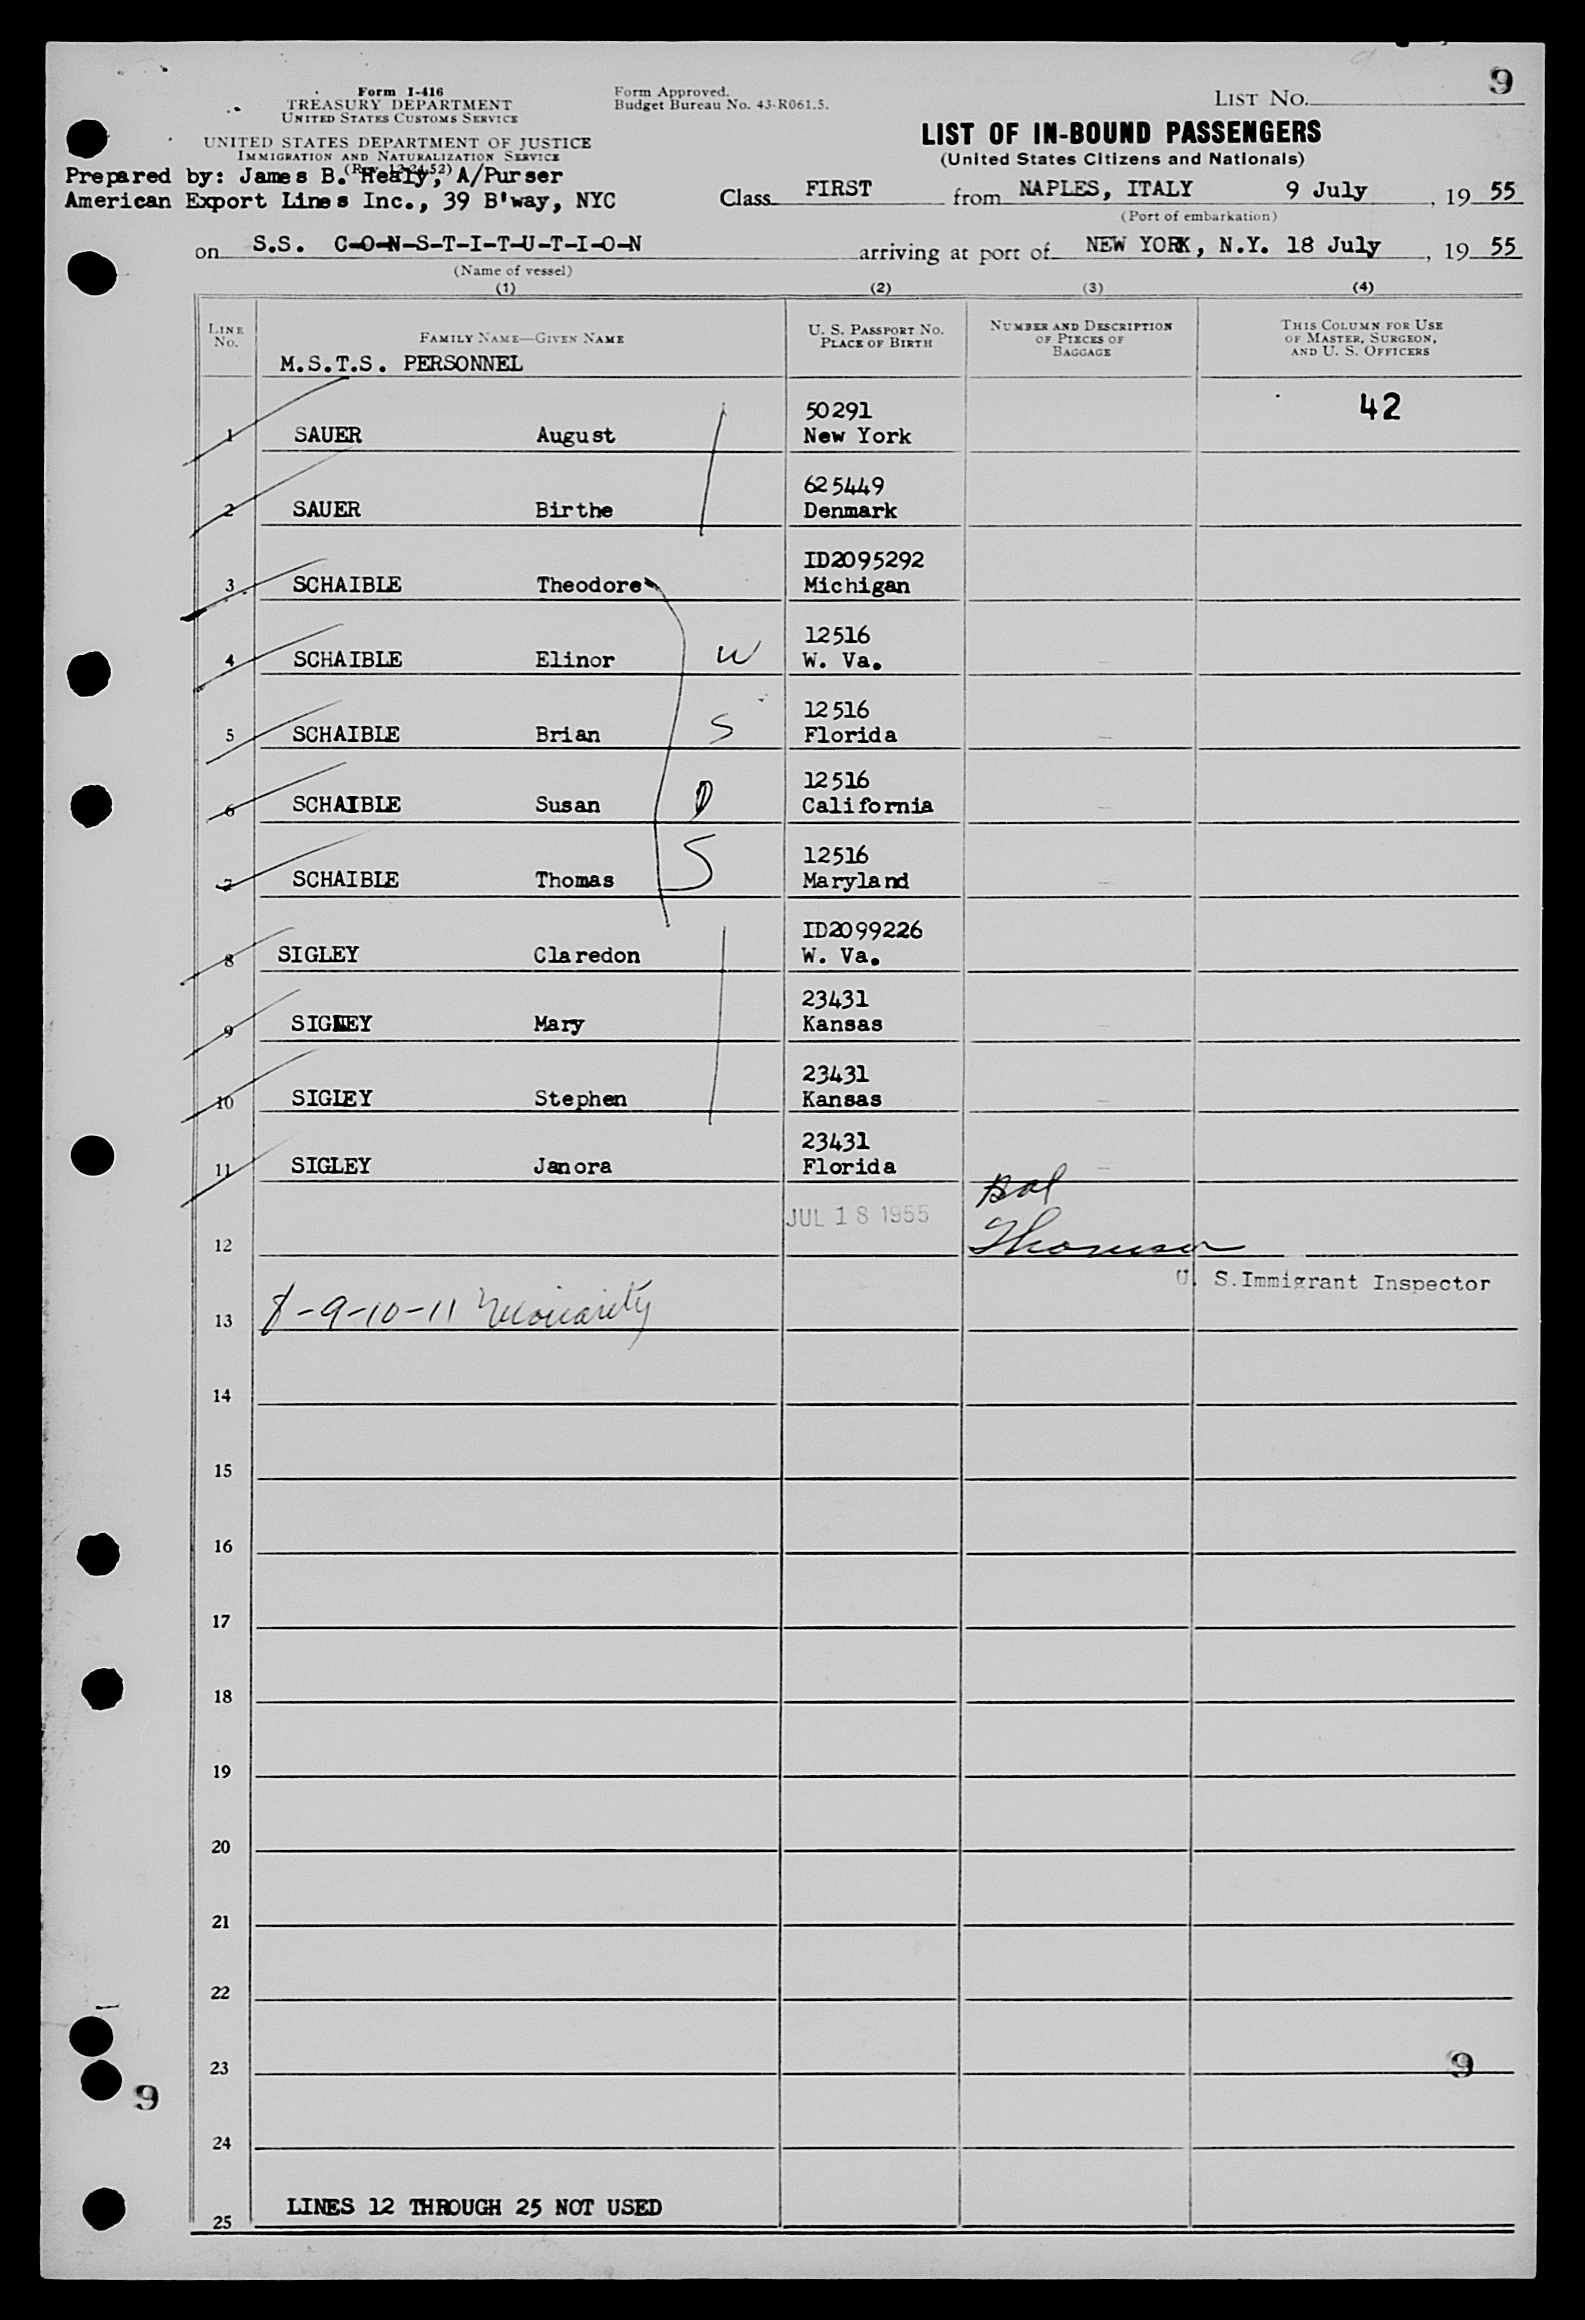 9
Form I-416
TREASURY DEPARTMENT
UNITED STATES CUSTOMS SERVICE
Form Approved.
Budget Bureau No. 43-R061.5.
LIST No.
UNITED STATES DEPARTMENT OF JUSTICE
IMMIGRATION AND NATURALIZATION SERVICE
(Rev. 12-24-52)
LIST OF IN-BOUND PASSENGERS
(United States Citizens and Nationals)
Prepared by: James B. Healy, A/Purser
American Export Lines Inc., 39 B'way, NYC
Class FIRST from NAPLES, ITALY 9 July, 19 55
(Port of embarkation)
on S.S. C-O-N-S-T-I-T-U-T-I-O-N arriving at port of NEW YORK, N.Y. 18 July, 19 55
(Name of vessel)
(1) (2) (3) (4)
LINE No.
FAMILY NAME—GIVEN NAME
U. S. PASSPORT NO.
PLACE OF BIRTH
NUMBER AND DESCRIPTION
OF PIECES OF
BAGGAGE
THIS COLUMN FOR USE
OF MASTER, SURGEON,
AND U. S. OFFICERS
M.S.T.S. PERSONNEL
50291 42
1 SAUER August New York
625449
2 SAUER Birthe Denmark
ID2095292
3 SCHAIBLE Theodore Michigan
12516
4 SCHAIBLE Elinor W W. Va.
12516
5 SCHAIBLE Brian S Florida
12516
6 SCHAIBLE Susan D California
12516
7 SCHAIBLE Thomas S Maryland
ID2099226
8 SIGLEY Claredon W. Va.
23431
9 SIGNEY Mary Kansas
23431
10 SIGLEY Stephen Kansas
23431
11 SIGLEY Janora Florida
JUL 18 1955
12 Thomson
U. S. Immigrant Inspector
13 8-9-10-11 Moriarity
14
15
16
17
18
19
20
21
22
23 9
9
24
LINES 12 THROUGH 25 NOT USED
25